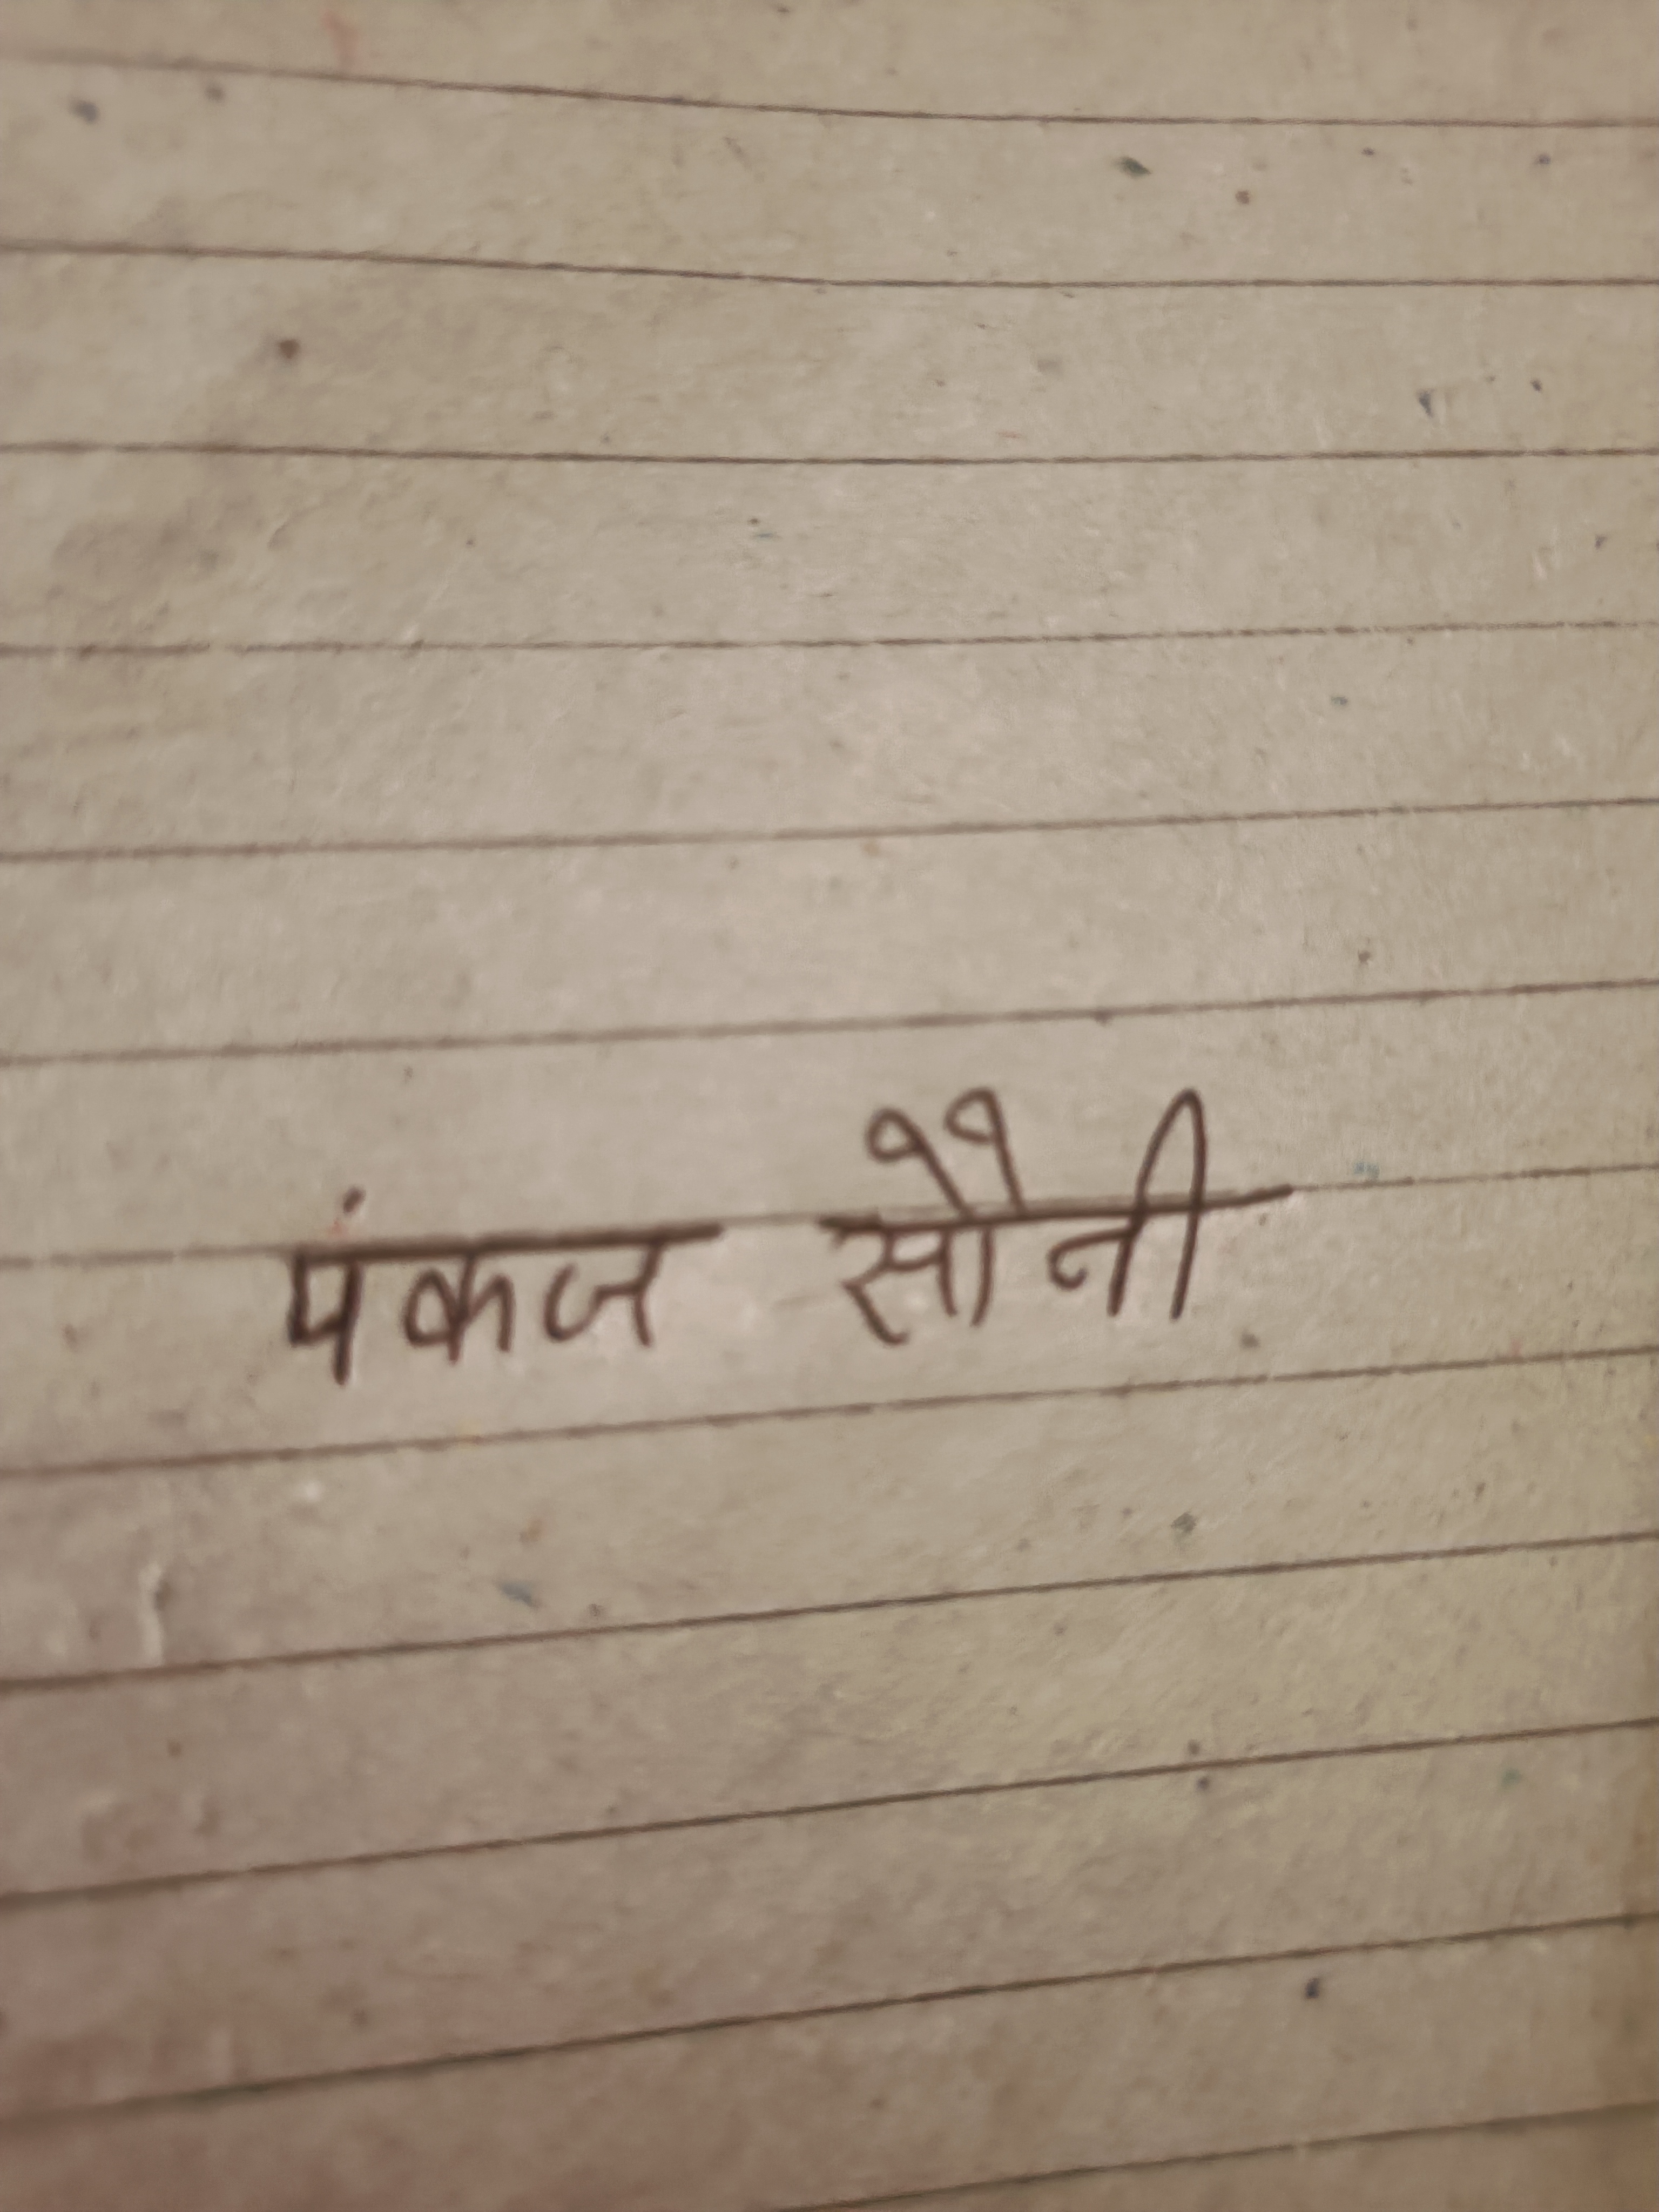 पंकज सौनी